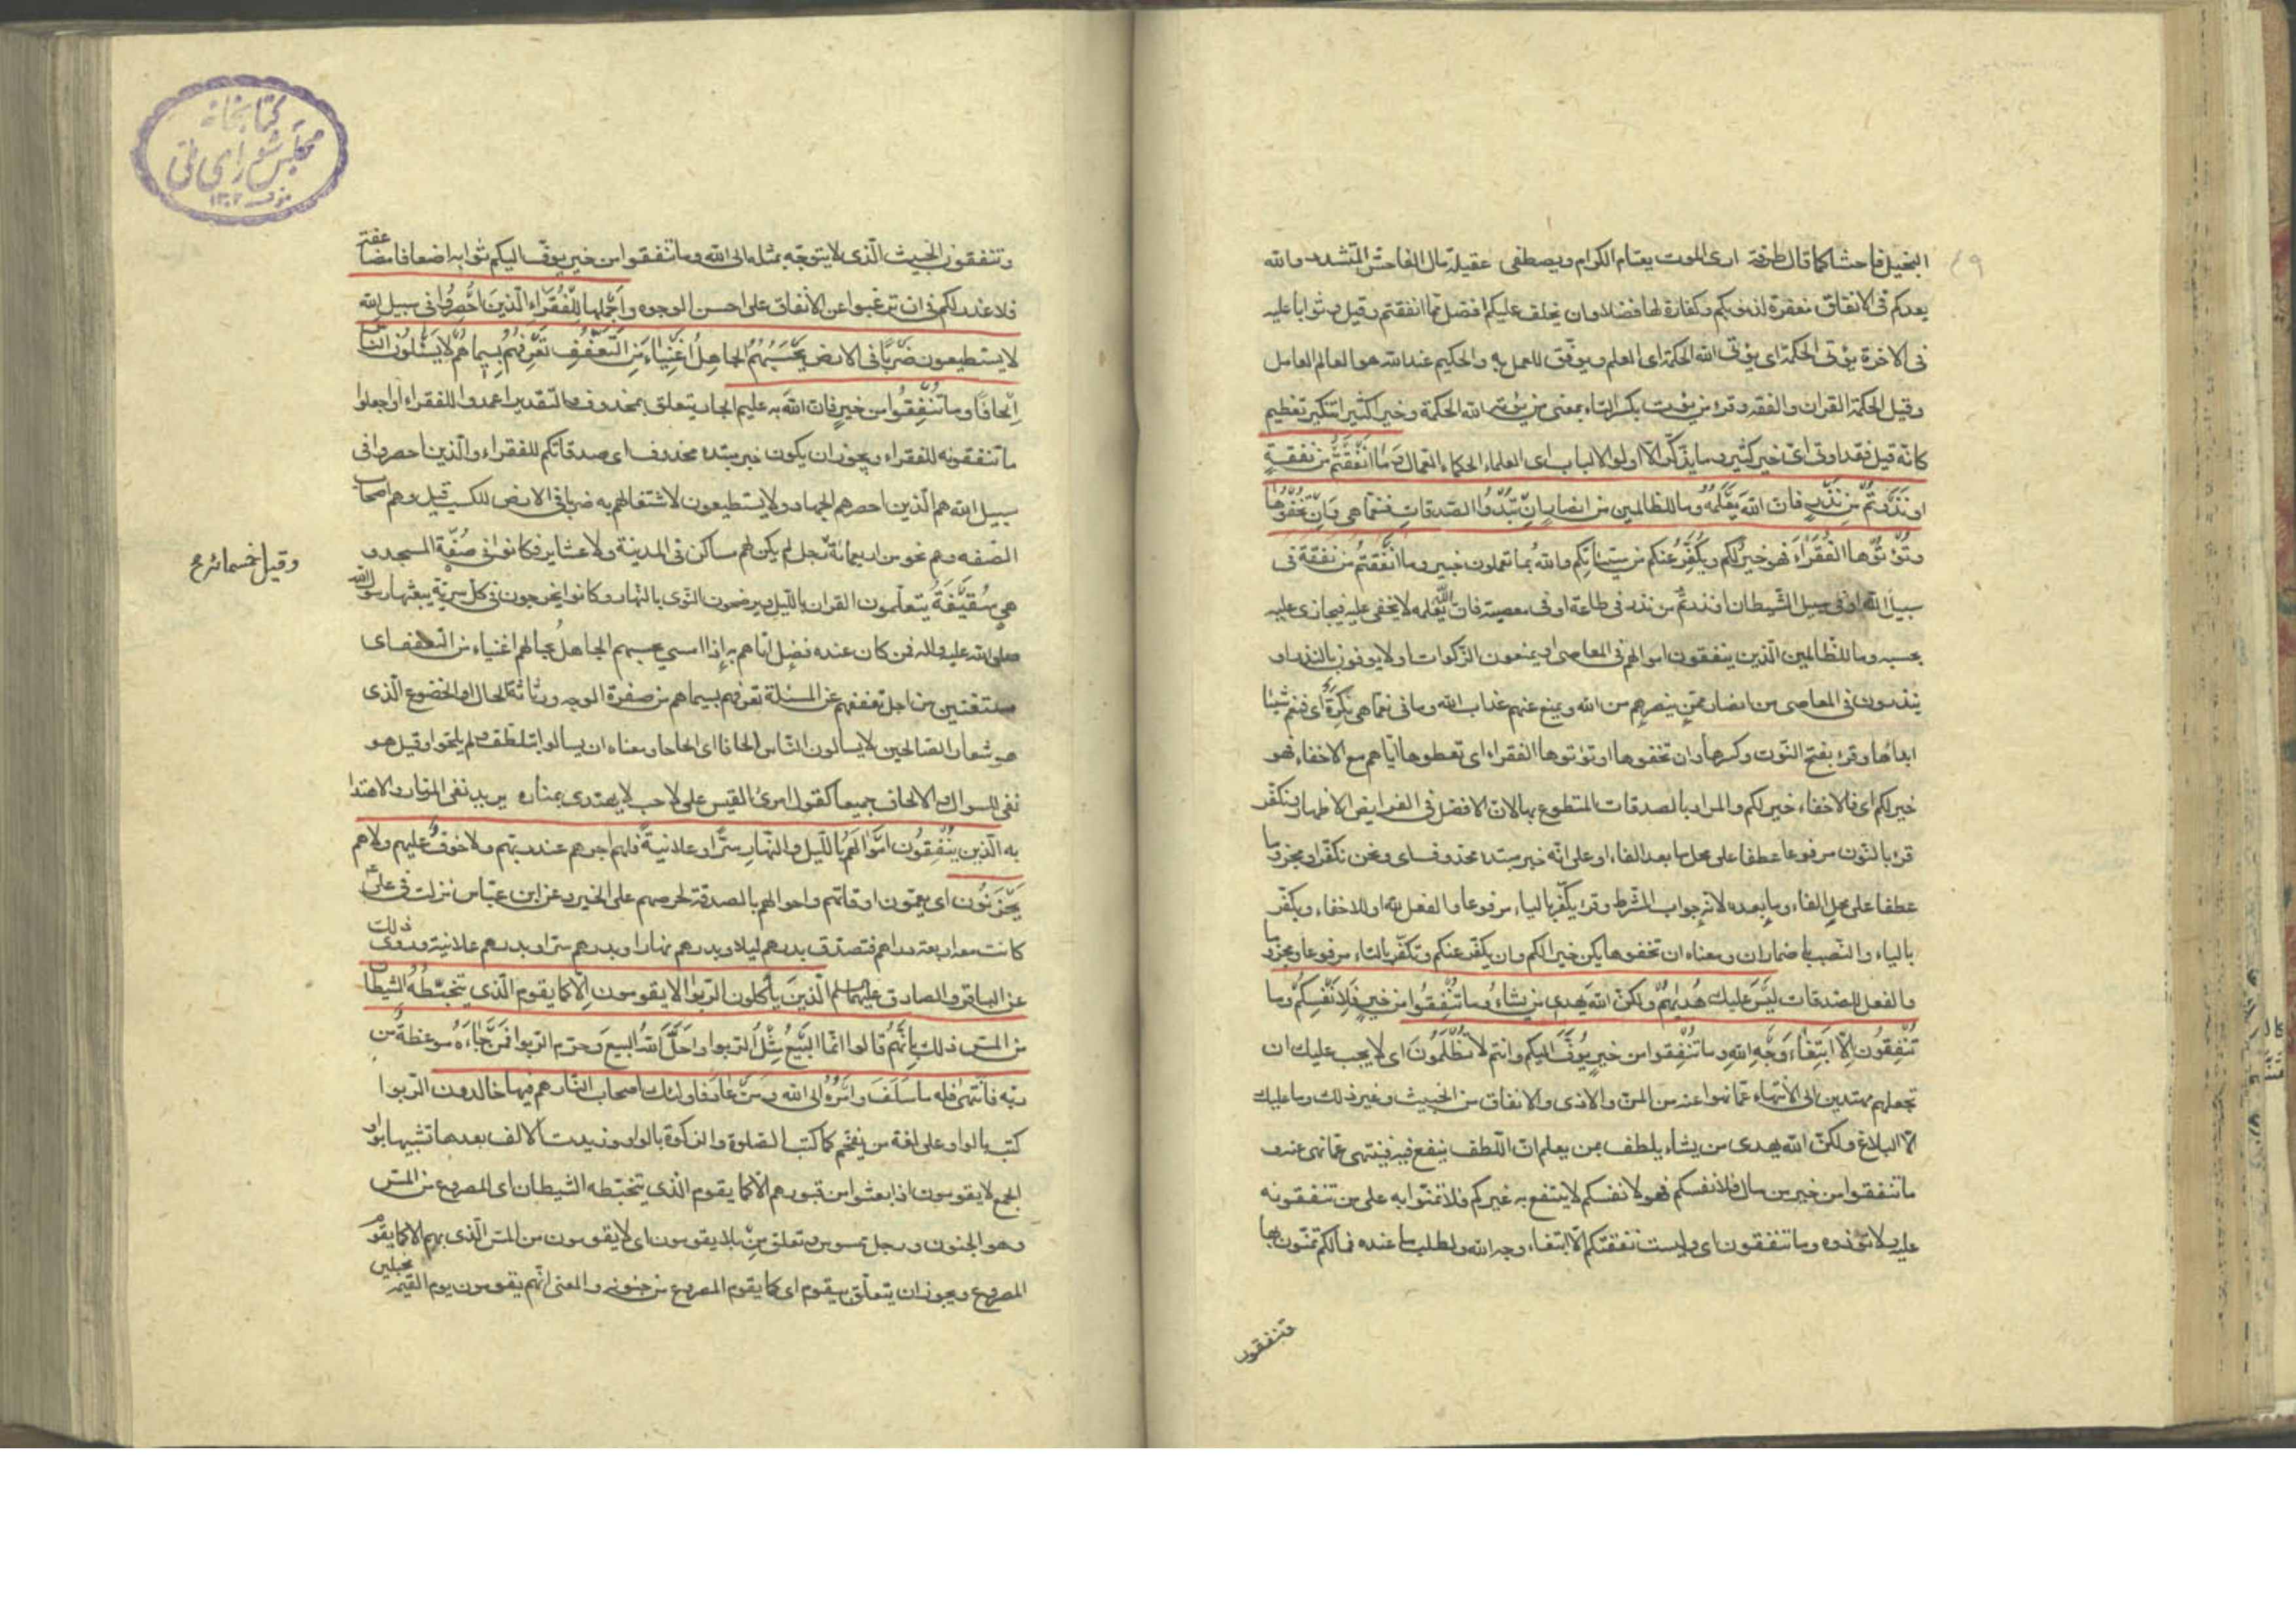 البخيل فاحشا كما قال طرفة ارى الموت يعتام الكرام ويصطفى عقيلة مال الفاحش المتشدد والله
يعدكم فى الانفاق مغفرة لذنوبكم وكفارة لها فضلا وان يخلف عليكم افضل مما انفقتم وقيل وثوابا عليه
فى الاخرة يؤتى الحكمة اى يؤتى الله الحكمة اى العلم ويوفق للعمل به والحكيم عند الله هو العالم العامل
وقيل الحكمة القران والفقه وقرئ من يؤت بكسر التاء بمعنى من يؤته الله الحكمة وخيرا كثيرا تنكير تعظيم
كانه قيل فقد اوتى اى خير كثير وما يذكر الا اولو الالباب اى العلماء الحكماء العمال وَمَا اَنْفَقْتُمْ مِنْ نفقةٍ
او نَذَرْتُمْ مِنْ نَذْرٍ فان الله يَعْلَمُهُ وما للظالمين من انصار ان تُبْدُوا الصدقاتِ فنعما هى وَاِنْ تُخْفُوهَا
وَتُؤْتُوهَا الفُقَرَاءَ فهو خير لكم ويُكَفِّرُ عنكم من سيئاتكم والله بما تعملون خبير وما انفقتم من نفقة فى
سبيل الله او فى سبيل الشيطان او نذرتم من نذر فى طاعة او فى معصية فان الله يعلمه لا يخفى عليه فيجازى عليه
بحسبه وما للظالمين الذين ينفقون اموالهم فى المعاصى او يمنعون الزكوات او لا يوفون بالنذر او
ينذرون فى المعاصى من انصار ممن ينصرهم من الله ويمنع عنهم عذاب الله وما فى نعما هى نكرة اى فنعم شيئا
ابداؤها وقرئ بفتح النون وكسرها وان تخفوها وتؤتوها الفقراء اى تعطوها اياهم مع الاخفاء فهو
خير لكم اى فالاخفاء خير لكم والمراد بالصدقات المتطوع بها لان الافضل فى الفرايض الاظهار ونكفر
قرئ بالنون مرفوعا عطفا على محل ما بعد الفاء او على انه خبر مبتدء محذوف اى ونحن نكفر ومجزوما
عطفا على محل الفاء وما بعده لانه جواب الشرط وقرئ يكفر بالياء مرفوعا والفعل لله او للاخفاء ويكفر
بالياء والنصب باضمار ان ومعناه ان تخفوها يكن خيرا لكم وان يكفر عنكم وتكفر بالتاء مرفوعا ومجزوما
والفعل للصدقات لَيْسَ عليك هُدٰيهُمْ ولكن الله يهدى من يشاء وما تُنْفِقُوا من خيرٍ فَلِاَنْفُسِكُمْ وما
تُنْفِقُونَ اِلَّا ابْتِغَاءَ وَجْهِ اللهِ وما تُنْفِقوا من خيرٍ يُوَفَّ اليكم وانتم لا تُظْلَمُونَ اى لا يجب عليك ان
تجعلهم مهتدين الى الانتهاء عما نهوا عنه من المن والاذى والانفاق من الخبيث وغير ذلك وما عليك
الا البلاغ ولكن الله يهدى من يشاء يلطف بمن يعلم ان اللطف ينفع فيه فينتهى عما نهى عنه و
ما تنفقوا من خير من مال فلانفسكم فهو لانفسكم لا ينتفع به غيركم فلا تمنوا به على من تنفقونه
عليه ولا تؤذوه وما تنفقون اى وليست نفقتكم الا ابتغاء وجه الله ولطلب ما عنده فما لكم تمنون بها
تنفقون
وتنفقون الخبيث الذى لا يتوجه بمثله الى الله وما تنفقوا من خير يوف اليكم ثوابه اضعافا مضاعفة
فلا عذر لكم فى ان ترغبوا عن الانفاق على احسن الوجوه واجملها لِلْفُقَرَاءِ الذين اُحْصِرُوا فى سبيل الله
لا يستطيعون ضَرْبًا فى الارض يَحْسَبُهُمُ الجاهِلُ اَغْنِيَاءَ مِنَ التَّعَفُّفِ تَعْرِفُهُمْ بِسِيمَاهُمْ لا يَسْئَلُونَ النَّاسَ
اِلْحَافًا وما تُنْفِقُوا من خيرٍ فان الله به عليم الجار يتعلق بمحذوف والتقدير اعمدوا للفقراء او اجعلوا
ما تنفقونه للفقراء ويجوز ان يكون خبر مبتدء محذوف اى صدقاتكم للفقراء والذين احصروا فى
سبيل الله هم الذين احصرهم الجهاد ولا يستطيعون لاشتغالهم به ضربا فى الارض للكسب قيل وهم اصحاب
الصفه وهم نحو من اربعمائة رجل لم يكن لهم مساكن فى المدينة ولا عشاير فكانوا فى صُفّة المسجد و
وقيل خمسمائة رح
هى سُقَيْفَة يتعلمون القران بالليل ويرضحون النوى بالنهار وكانوا يخرجون فى كل سرية يبعثها رسول الله
صلى الله عليه واله فمن كان عنده فضل اتاهم به اذا امسى يحسبهم الجاهل بحالهم اغنياء من التعفف اى
مستغنين من اجل تعففهم عن المسئلة تعرفهم بسيماهم من صفرة الوجه ورثاثة الحال او الخضوع الذى
هو شعار الصالحين لا يسألون الناس الحافا اى الحاحا ومعناه ان يسألوا بتلطف ولم يلحوا وقيل هو
نفى للسؤال والالحاف جميعا كقول امرئ القيس على لاحب لا يهتدى بمناره يريد نفى المنار والاهتداء
به الذين يُنْفِقُونَ اَمْوَالَهُمْ بالليل والنهارِ سرًّا وعلانيةً فلهم اجرهم عند ربهم ولا خوفٌ عليهم ولا هم
يَحْزَنُونَ اى يعمون اوقاتهم واحوالهم بالصدقة لحرصهم على الخير وعن ابن عباس نزلت فى على
كانت معه اربعة دراهم فتصدق بدرهم ليلا وبدرهم نهارا وبدرهم سرا وبدرهم علانية وروى ذلك
عن الباقر والصادق عليهما السلم الَّذِينَ يأكلون الربوا لا يقومون اِلَّا كما يقوم الَّذى يَتَخَبَّطُهُ الشيطان
من المس ذلك بِاَنَّهُمْ قالوا انما البَيْعُ مِثْلُ الربوا واَحَلَّ اللهُ البيع وحرم الربوا فَمَنْ جَاءَهُ موعظةٌ من
ربه فانتهى فله ما سَلَفَ واَمْرُهُ الى الله ومن عَادَ فاولئك اصحاب النار هم فيها خالدون الربوا
كتب بالواو على لغة من يفخم كما كتب الصلوة والزكوة بالواو وزيدت الالف بعدها تشبيها بواو
الجمع لا يقومون اذا بعثوا من قبورهم الا كما يقوم الذى يتخبطه الشيطان اى المصروع من المس
وهو الجنون ورجل ممسوس وتعلق من بلا يقومون اى لا يقومون من المس الذى بهم الا كما يقوم
المصروع ويجوز ان يتعلق بيقوم اى كما يقوم المصروع من جنونه والمعنى انهم يقومون يوم القيمة مخبلين
كتابخانه
مجلس شورای ملی